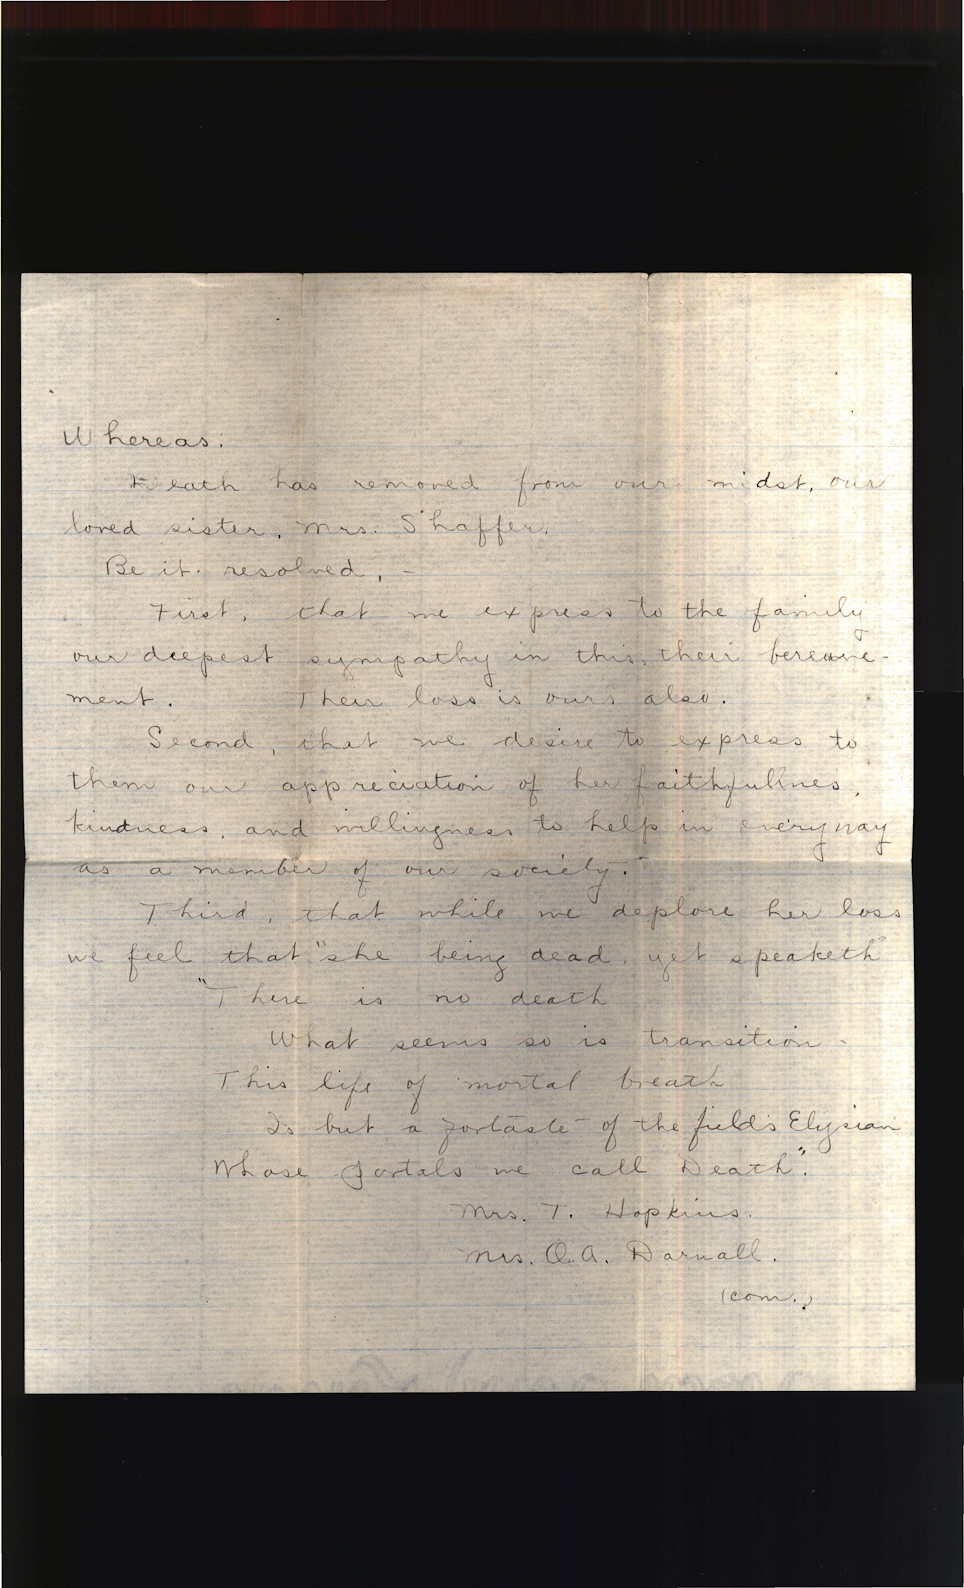 Whereas:
Death has removed from our midst, our
loved sister, Mrs. Shaffer.
Be it resolved, -
First, that we express to the family
our deepest sympathy in this, their bereave-
ment. Their loss is ours also.
Second, that we desire to express to
them our appreciation of her faithfullnes,
kindness, and willingness to help in everyway
as a member of our society.
Third, that while we deplore her loss
we feel that "she being dead, yet speaketh"
"There is no death
What seems so is transition -
This life of mortal breath
Is but a fortaste of the fields Elysian
Whose portals we call Death".
Mrs. T. Hopkins.
Mrs. O.A. Darnall.
(com.)